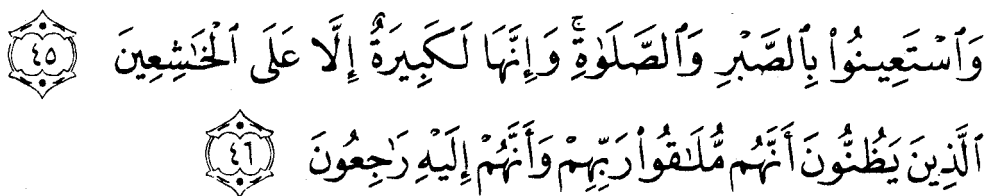 وَٱسْتَعِينُوا۟ بِٱلصَّبْرِ وَٱلصَّلَوٰةِۚ وَإِنَّهَا لَكَبِيرَةٌ إِلَّا عَلَى ٱلْخَٰشِعِينَ ٤٥
ٱلَّذِينَ يَظُنُّونَ أَنَّهُم مُّلَٰقُوا۟ رَبِّهِمْ وَأَنَّهُمْ إِلَيْهِ رَٰجِعُونَ ٤٦